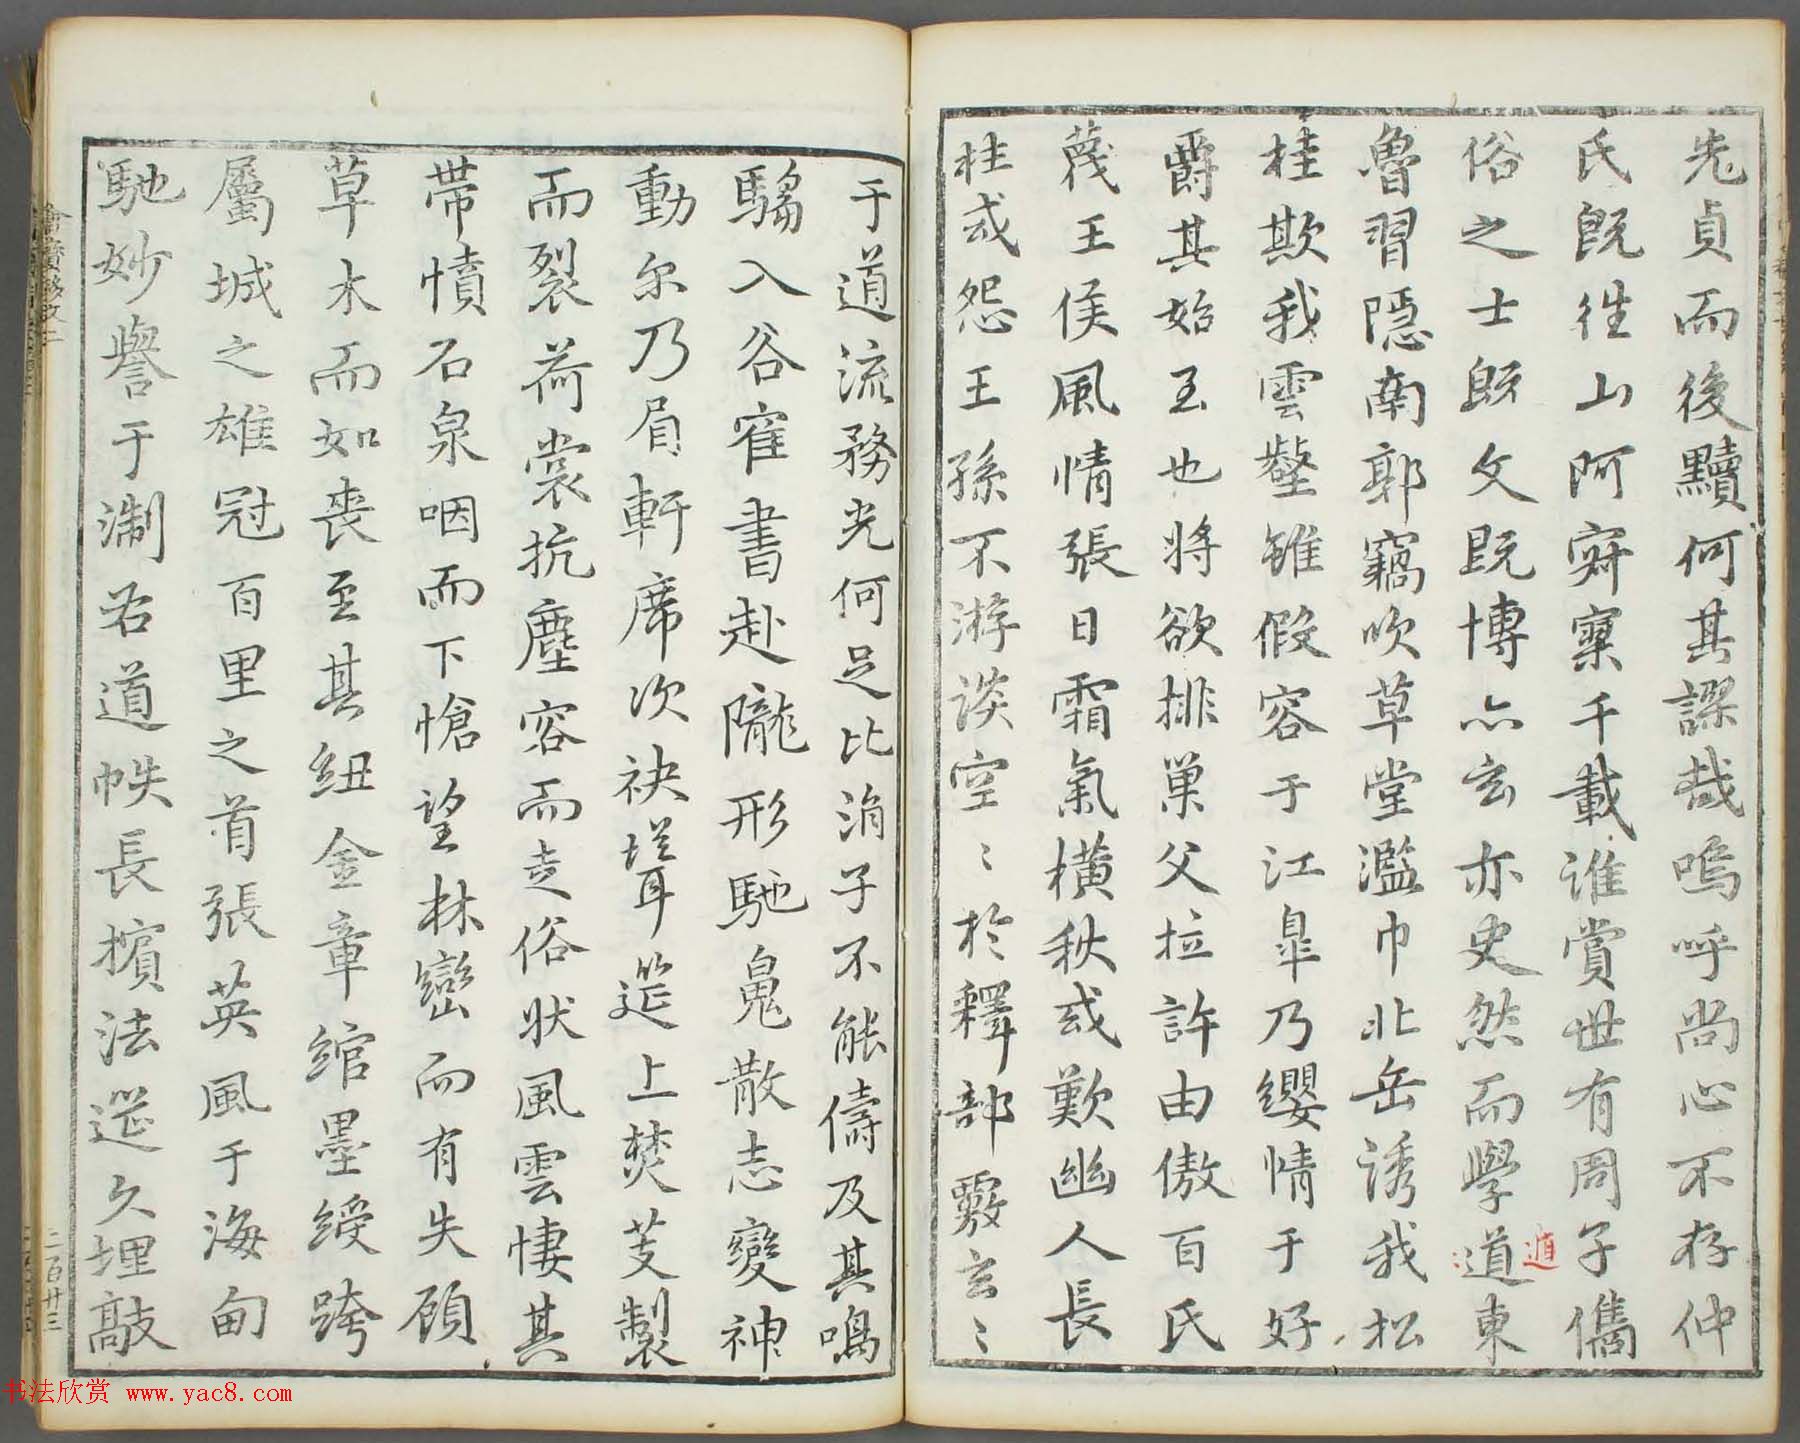 先貞而後黷何其謬哉嗚呼尚心不存仲
氏既徃山阿寂寞千載誰賞世有周子儁
俗之士既文既博亦玄亦史然而學道東
遁
魯習隱南郭竊吹草堂濫巾北岳誘我松
桂欺我雲壑雖假容于江皐乃纓情于好
爵其始至也將欲排巢父拉許由傲百氏
蔑王侯風情張日霜氣橫秋或歎幽人長
往或怨王孫不游談空〻於釋部覈玄〻
于道流務光何足比涓子不能儔及其鳴
騶入谷隺書赴隴形馳鬼散志變神
動尔乃眉軒席次袂聳筵上焚芰製
而裂荷裳抗塵容而走俗状風雲悽其
帶憤石泉咽而下愴望林巒而有失顧
草木而如喪至其紐金章綰墨綬跨
屬城之雄冠百里之首張英風于海甸
馳妙譽于淛右道帙長擯法筵久埋敲
二百廿三
书法欣赏 www.yac8.com